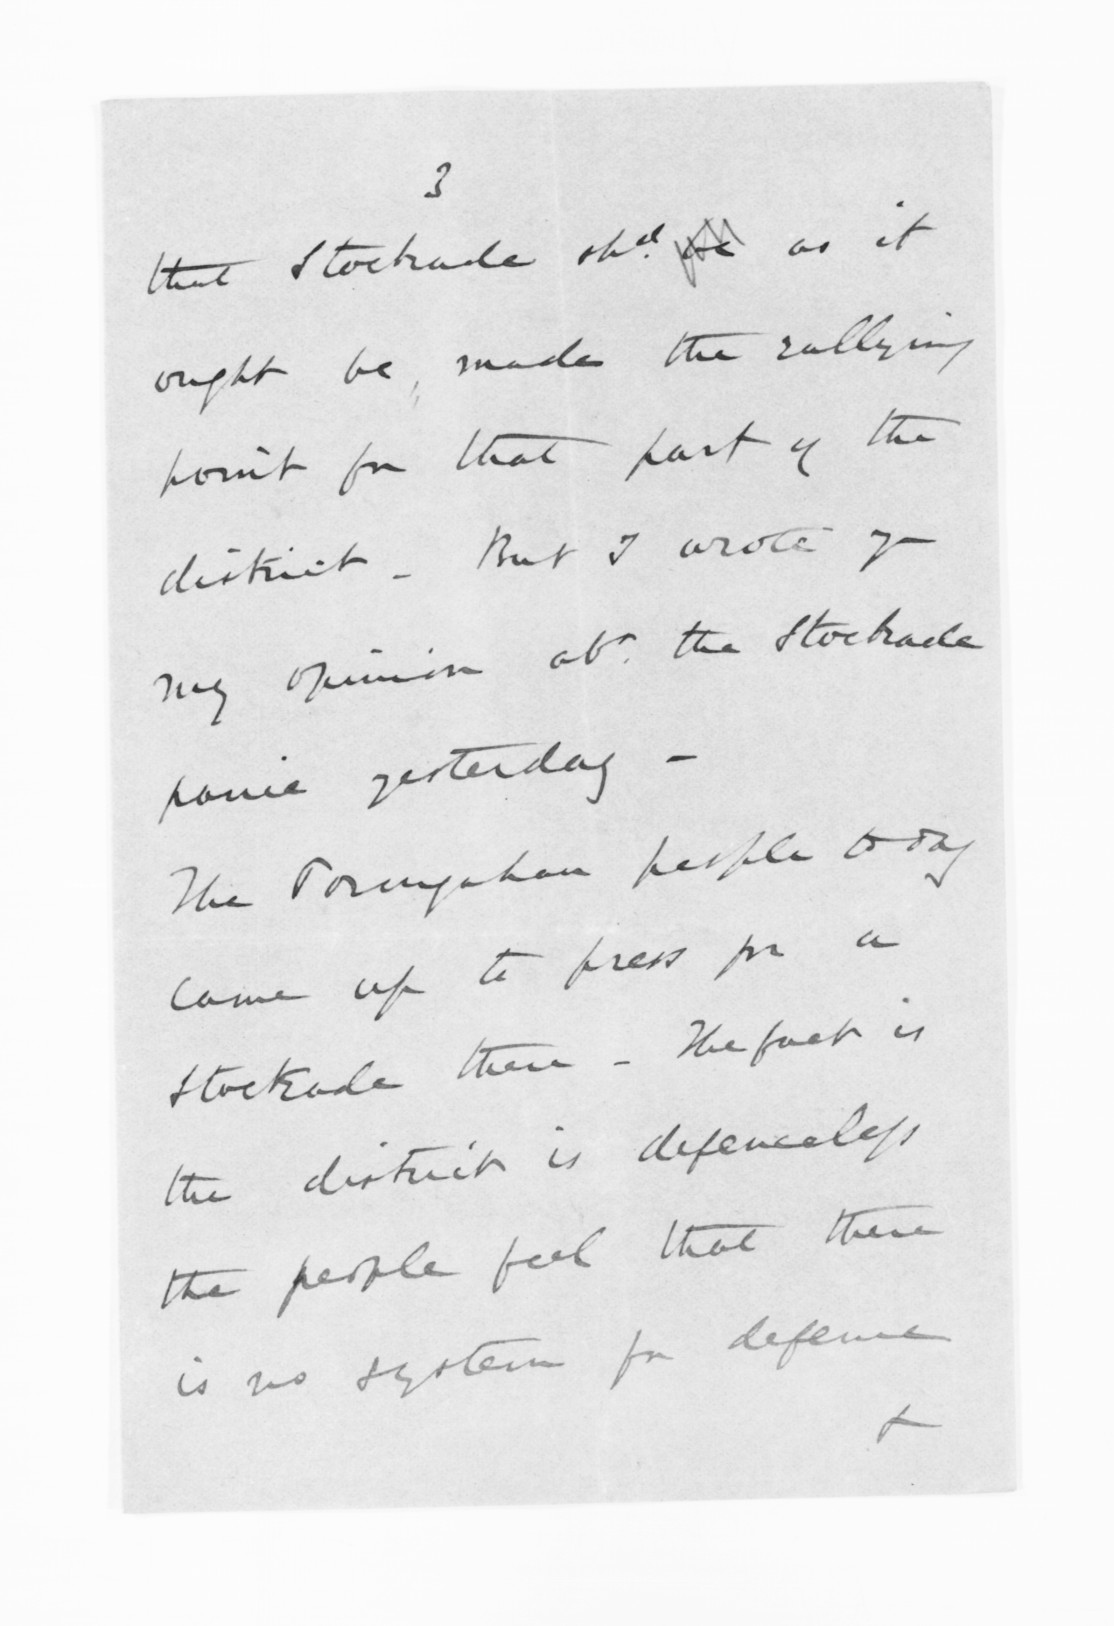 3
that Stockade shd. as it
ought be, made the rallying
point for that part of the
district - But I wrote yr
my opinion abt. the Stockade
panic yesterday -
The Porangahau people today
came up to press for a
Stockade there - The fact is
the district is defenceless
the people feel that there
is no system for defence
+